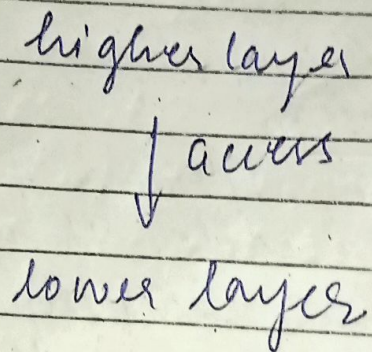 higher layer
access
lower layer